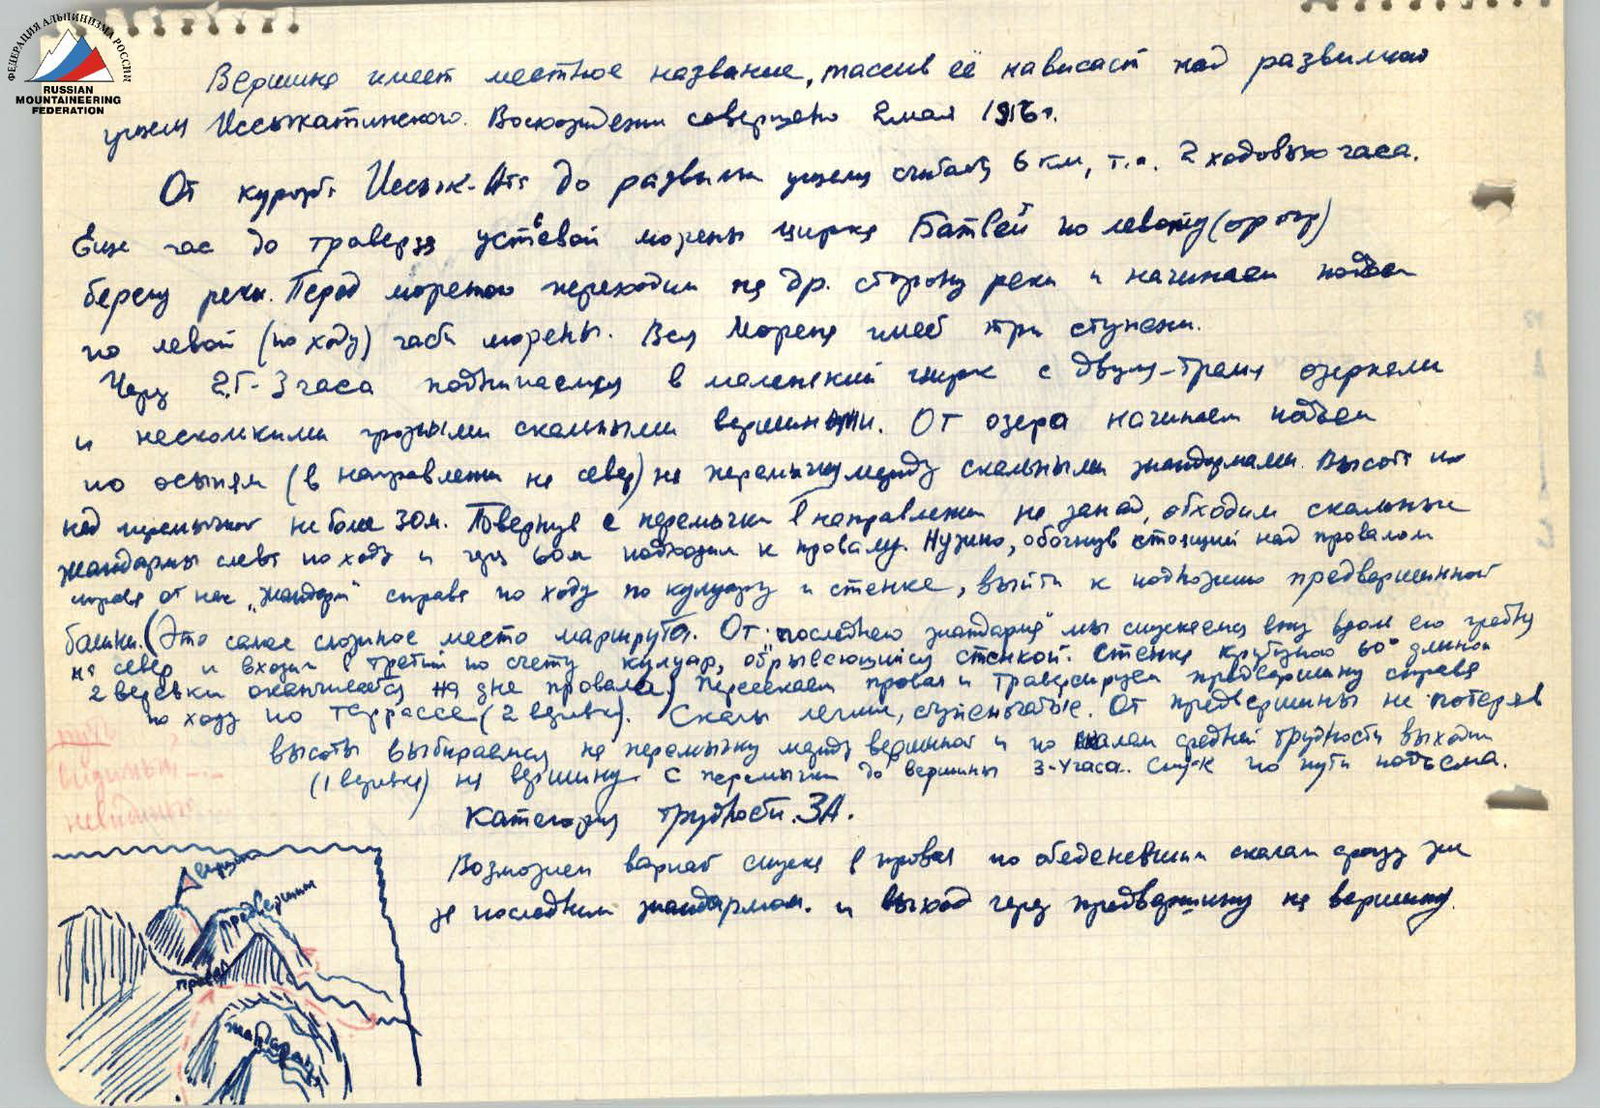 ФЕДЕРАЦИЯ АЛЬПИНИЗМА РОССИИ
RUSSIAN
MOUNTAINEERING
FEDERATION
Вершина имеет местное название, массив её нависает над развилкой
ущелья Иссыкатинского. Восхождение совершено 2 мая
От курорта Иссык-Ата до развилки ущелья считают 6 км, т.е. 2 ходовых часа.
Еще час до траверза устьевой морены цирка по левому (орогр)
берегу реки. Перед мореною переходим на др. сторону реки и начинаем подъем
по левой (по ходу) части морены. Вся морена имеет три ступени.
Через 2,5-3 часа поднимаемся в маленький цирк с двумя-тремя озерками
и несколькими грозными скальными вершинами. От озера начинаем подъем
по осыпям (в направлении на север) на перемычку между скальными жандармами. Высота их
над перемычкой не более 30м. Повернув с перемычки в направлении на запад, обходим скальные
жандармы слева по ходу и через 60м подходим к провалу. Нужно, обогнув стоящий над провалом
справа от нас "жандарм" справа по ходу по кулуару и стенке, выйти к подножию предвершинной
башни. (Это самое сложное место маршрута. От "последнего жандарма" мы спускаемся вниз вдоль его гребня
на север и входим в третий по счету кулуар, обрывающийся стенкой. Стенка крутизной 60° длиной
2 веревки оканчивается на дне провала.) Пересекаем провал и траверсируем предвершину справа
по ходу по террасе (2 веревки). Скалы легкие, ступенчатые. От предвершины не потеряв
высоты выбираемся на перемычку между вершиной и по скалам средней трудности выходим
(1 веревка) на вершину. С перемычки до вершины 3-4 часа. Спуск по пути подъема.
видимый
невидимый
Категория трудности 3А.
Возможен вариант спуска в провал по обледеневшим скалам сразу же
за последним жандармом и выход через предвершину на вершину.
вершина
предвершина
провал
жандарм